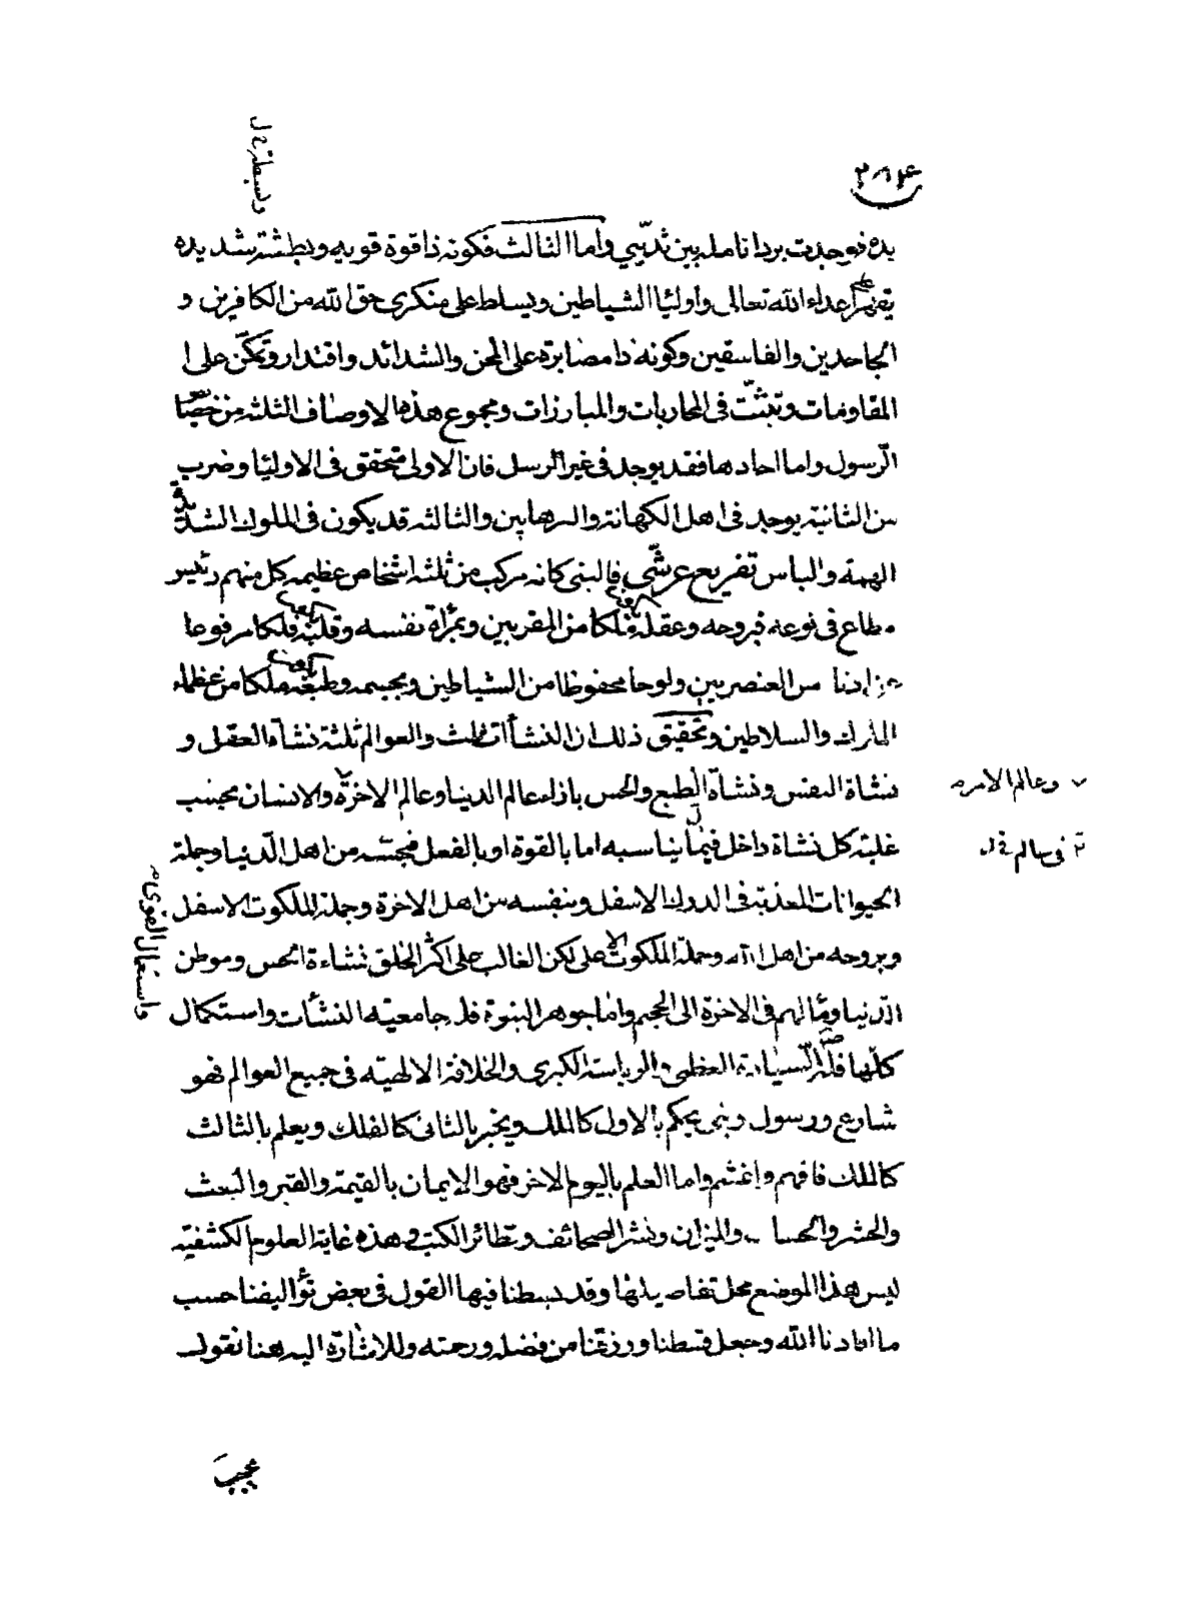 ٢٨٤
يده فوجدت برد انامله بين ثديي واما الثالث فكونه ذا قوة قويه وبطشة شديده
يقهر اعداء الله تعالى واوليا الشياطين ويسلط على منكرى حق الله من الكافرين و
الجاحدين والفاسقين وكونه ذا مصابرة على المحن والشدائد واقتدار وتمكّن على ا
المقاومات وتثبّت فى المحاربات والمبارزات ومجموع هذه الاوصاف الثلثه من
الرّسول واما احادها فقد يوجد فى غير الرسل فان الاولى متحقق فى الاوليا وضرب
من الثانية يوجد فى اهل الكهانة والرهابين والثالثه قد يكون فى الملوك
الهمة والباس تفريع عرشّى فالنبى كانه مركب من ثلثه اشخاص عظيمه كل منهم رئيس
مطاع فى نوعه فبروحه وعقله ملكا من المقربين وبمرأة نفسه وقلبه فلكا مرفوعا
عن ادناس العنصريين ولوحا محفوظا من الشياطين وبجسمه وطبعه ملكا من عظماء
الملوك والسلاطين وتحقيق ذلك ان النشأت ثلث والعوالم ثلثة نشاة العقل و
نشاة النفس ونشاة الطبع والحس بازاء عالم الدنيا وعالم الاخرة والانسان بحسب
وعالم الامر
غلبة كل نشاة داخل فيما يناسبه اما بالقوة او بالفعل فبحسّه من اهل الدّنيا وجملة
الحيوانات المعذبة فى الدرك الاسفل وبنفسه من اهل الاخرة وجملة الملكوت الاسفل
وبروحه من اهل الله وجملة الملكوت الاعلى لكن الغالب على اكثر الخلق نشاءة الحس وموطن
الدّنيا ومألهم فى الاخرة الى الجحيم واما جوهر النبوة فله جامعية النشأت واستكمال
واستعمال القوى
كلّها فله السيادة العظمى والرياسة الكبرى والخلافة الالهيه فى جميع العوالم فهو
شارع ورسول ونبى يحكم بالاول كالملك ويخبر بالثانى كالفلك ويعلم بالثالث
كالملك فافهم واغتنم واما العلم باليوم الاخر فهو الايمان بالقيمة والقبر والبعث
والحشر والحساب والميزان ونشر الصحائف وتطائر الكتب وهذه غاية العلوم الكشفيّة
ليس هذا الموضع محل تفاصيلها وقد بسطنا فيها القول فى بعض تؤاليفنا حسب
ما افادنا الله وجعل قسطنا ورزقنا من فضله ورحمته وللاشارة اليه هنا نقول